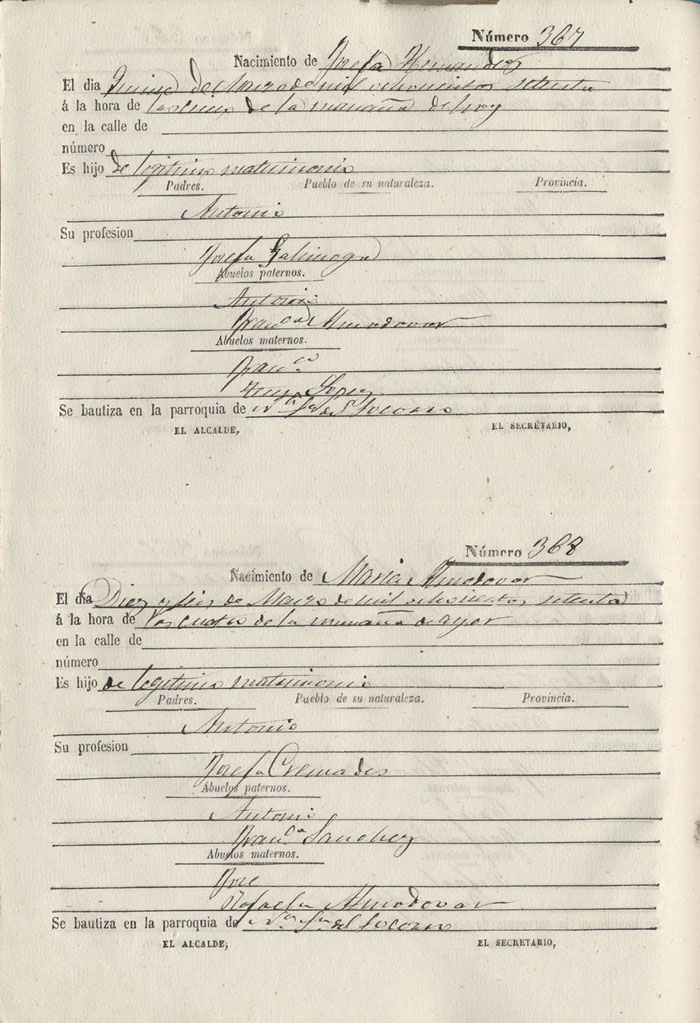 Número 367
Nacimiento de Josefa Hernandez
El dia Quince de Marzo de mil ochocientos setenta
á la hora de las cinco de la mañana de hoy
en la calle de
número
Es hijo de legitimo matrimonio
Padres. Pueblo de su naturaleza. Provincia.
Antonio
Su profesion
Josefa
Abuelos paternos.
Antonio
Fran.ca Almodovar
Abuelos maternos.
Fran.co
Lopez
Se bautiza en la parroquia de N.ª S.ª del Socorro
EL ALCALDE, EL SECRETARIO,
Número 368
Nacimiento de Maria Almodovar
El dia Diez y seis de Marzo de mil ochocientos setenta
á la hora de las cuatro de la mañana de ayer
en la calle de
número
Es hijo de legitimo matrimonio
Padres. Pueblo de su naturaleza. Provincia.
Antonio
Su profesion
Josefa Cremades
Abuelos paternos.
Antonio
Fran.ca Sanchez
Abuelos maternos.
Jose
Rafaela Almodovar
Se bautiza en la parroquia de N.ª S.ª del Socorro
EL ALCALDE, EL SECRETARIO,